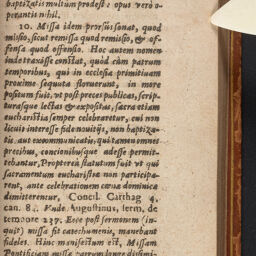 baptizatis multùm prodest: opus verò o-
perantis nihil.
10. Missa idem prorsus sonat, quod
missio, sicut remissa quod remissio, & of-
fensa quod offensio. Hoc autem nomen
inde traxisse constat, quòd cùm patrum
temporibus, qui in ecclesia primitivam
proximè sequuta floruerunt, in more
positum fuit, ut post preces publicas, scrip-
turasque lectas & expositas, sacra etiam
eucharistia semper celebraretur, cui non
licuit interesse fide novitijs, non baptiza-
tis aut excommunicatis, qui tamen omnes
precibus, concionibusque adesse permit-
tebantur, Propterea statutum fuit ut qui
sacramentum eucharistiæ non participa-
rent, ante celebrationem cœnæ dominicæ
dimitterentur, Concil. Carthag 4.
can. 8. Vnde Augustinus, serm. de
tempore 237. Ecce post sermonem (in-
quit) missa fit catechumenis, manebunt
fideles. Hinc manifestum est, Missam
Pontificiam missa patrum longè dissimi-